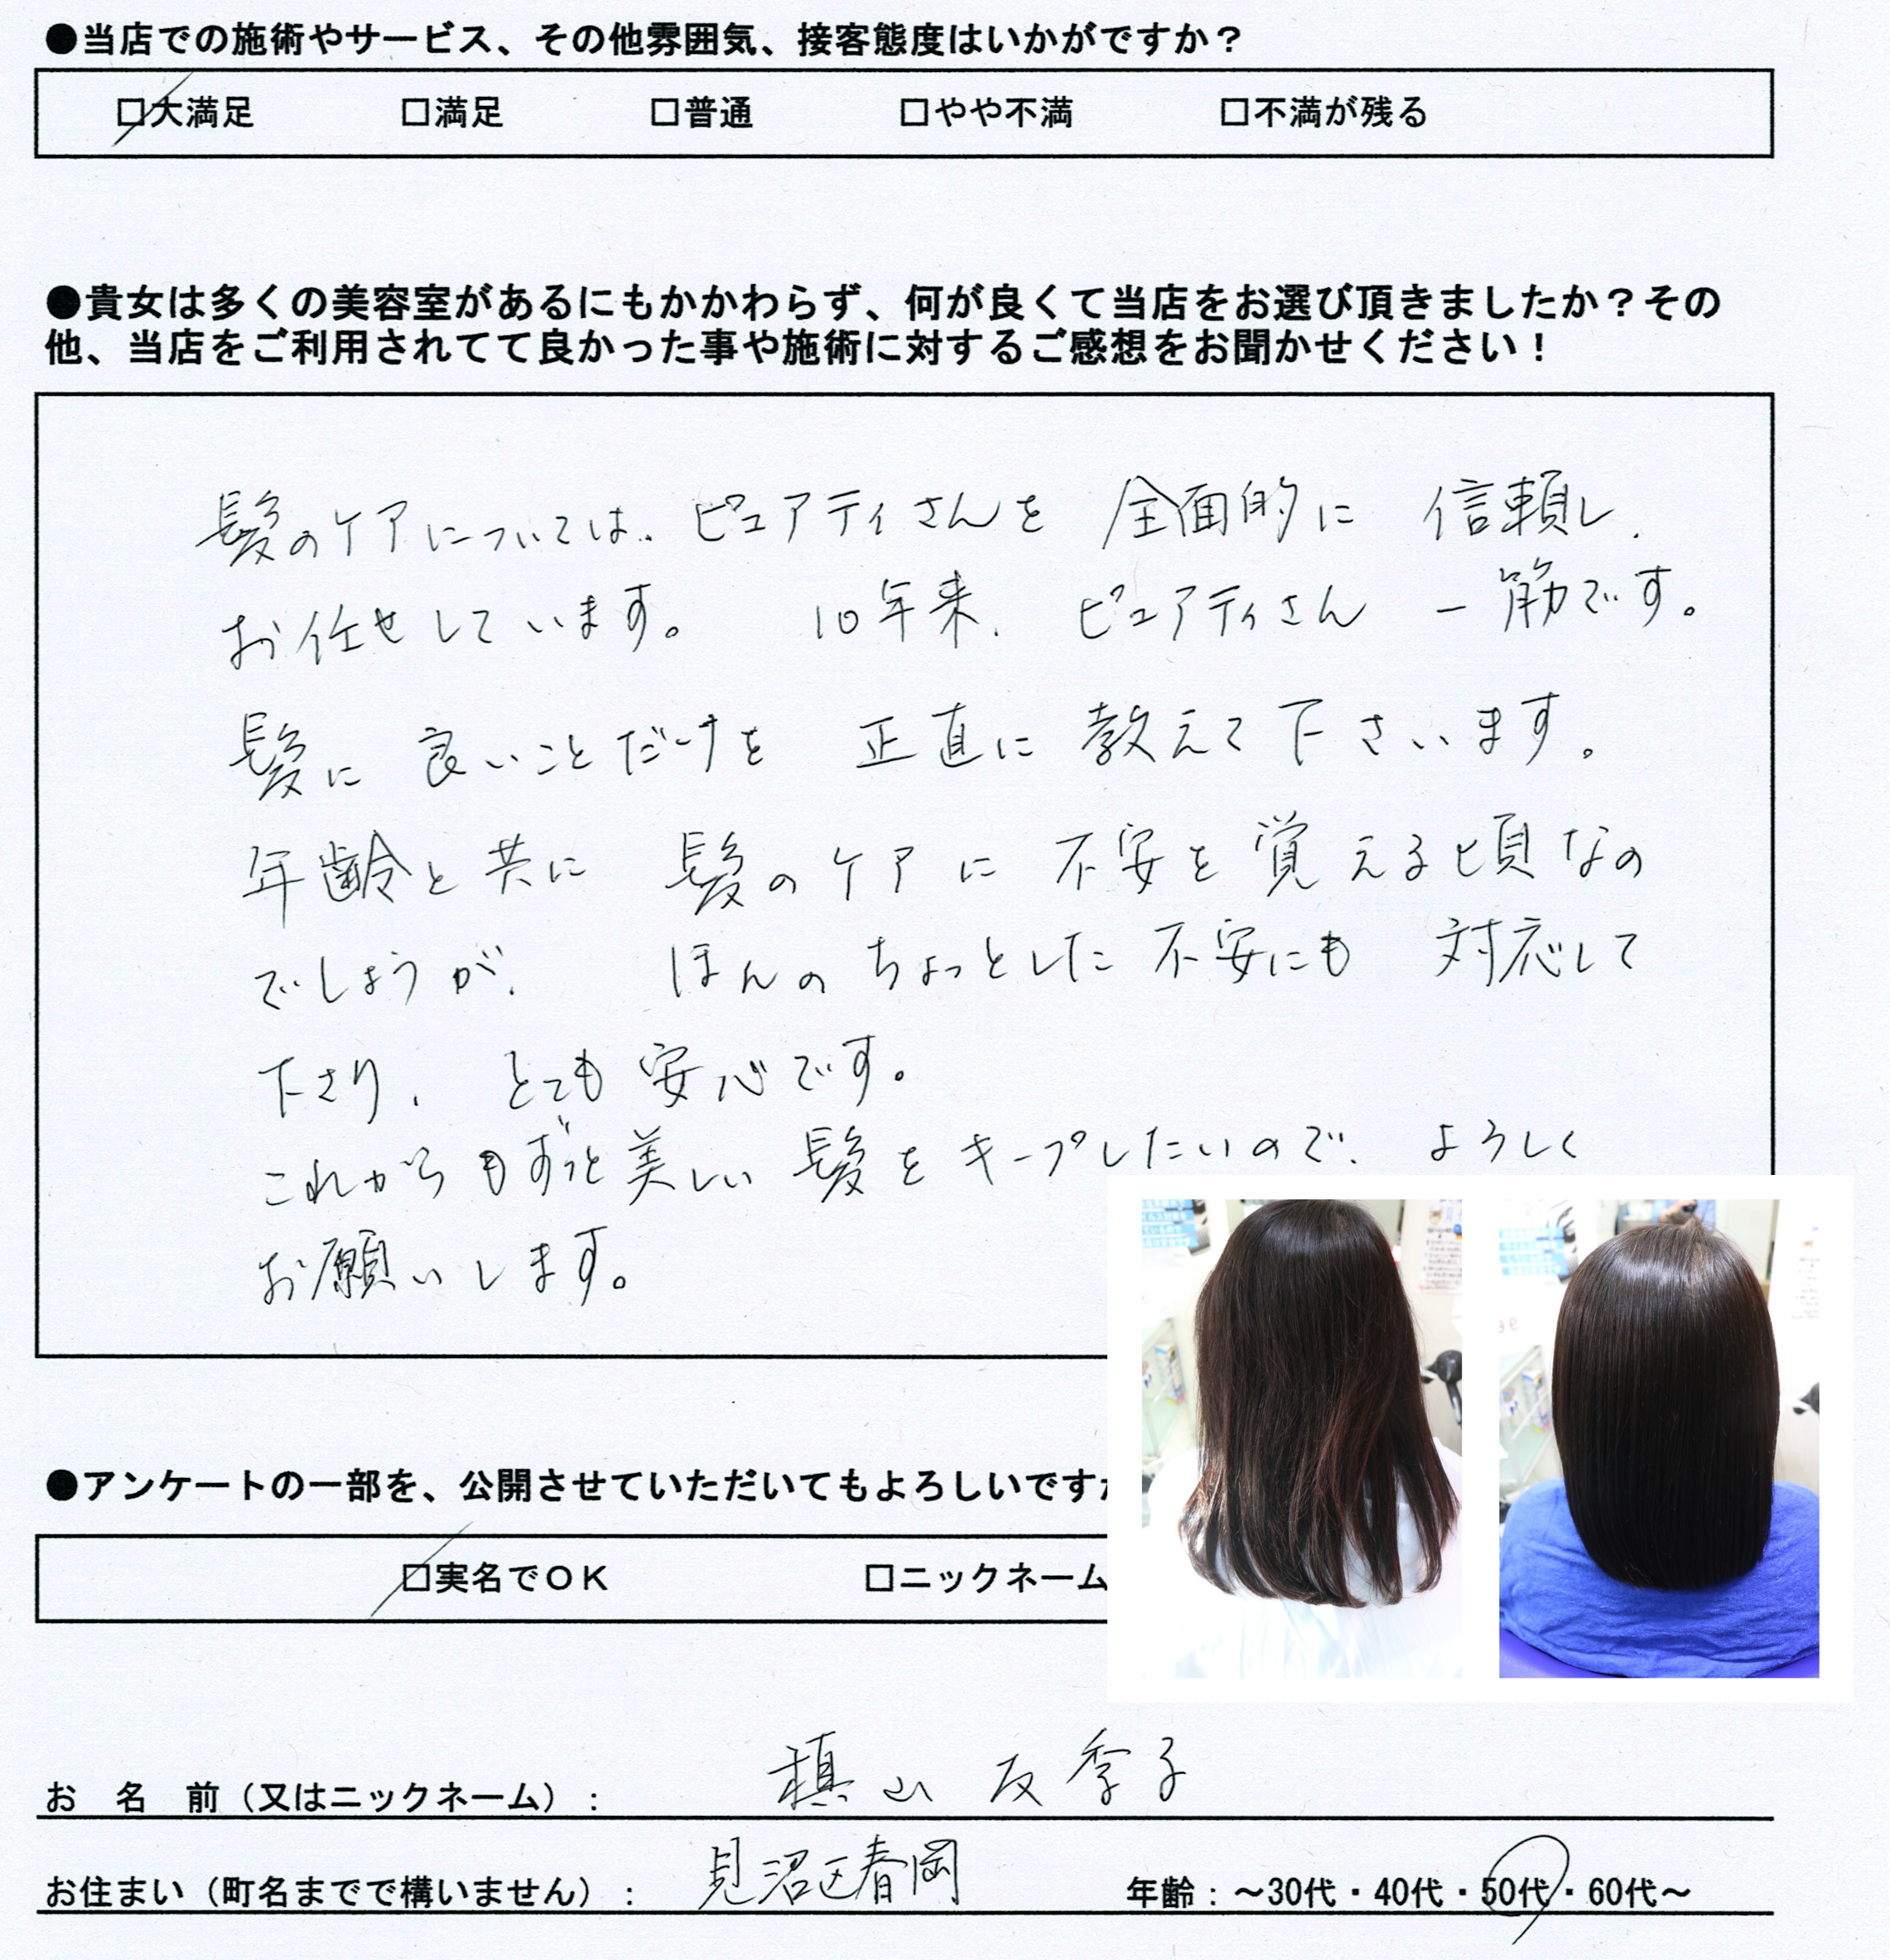 ●当店での施術やサービス、その他雰囲気、接客態度はいかがですか？
□大満足 □満足 □普通 □やや不満 □不満が残る
●貴女は多くの美容室があるにもかかわらず、何が良くて当店をお選び頂きましたか？その
他、当店をご利用されてて良かった事や施術に対するご感想をお聞かせください！
髪のケアについては、ピュアティさんを 全面的に 信頼し、
お任せしています。 10年来、ピュアティさん 一筋です。
髪に 良いことだけを 正直に 教えて下さいます。
年齢と共に 髪のケアに 不安を覚える頃なの
でしょうが、 ほんのちょっとした不安にも 対応して
下さり、 とても安心です。
これからもずっと美しい髪をキープしたいので、よろしく
お願いします。
●アンケートの一部を、公開させていただいてもよろしいですか
□実名でＯＫ □ニックネーム
お 名 前（又はニックネーム）： 槙山 友季子
お住まい（町名までで構いません）： 見沼区春岡 年齢：～30代・40代・50代・60代～